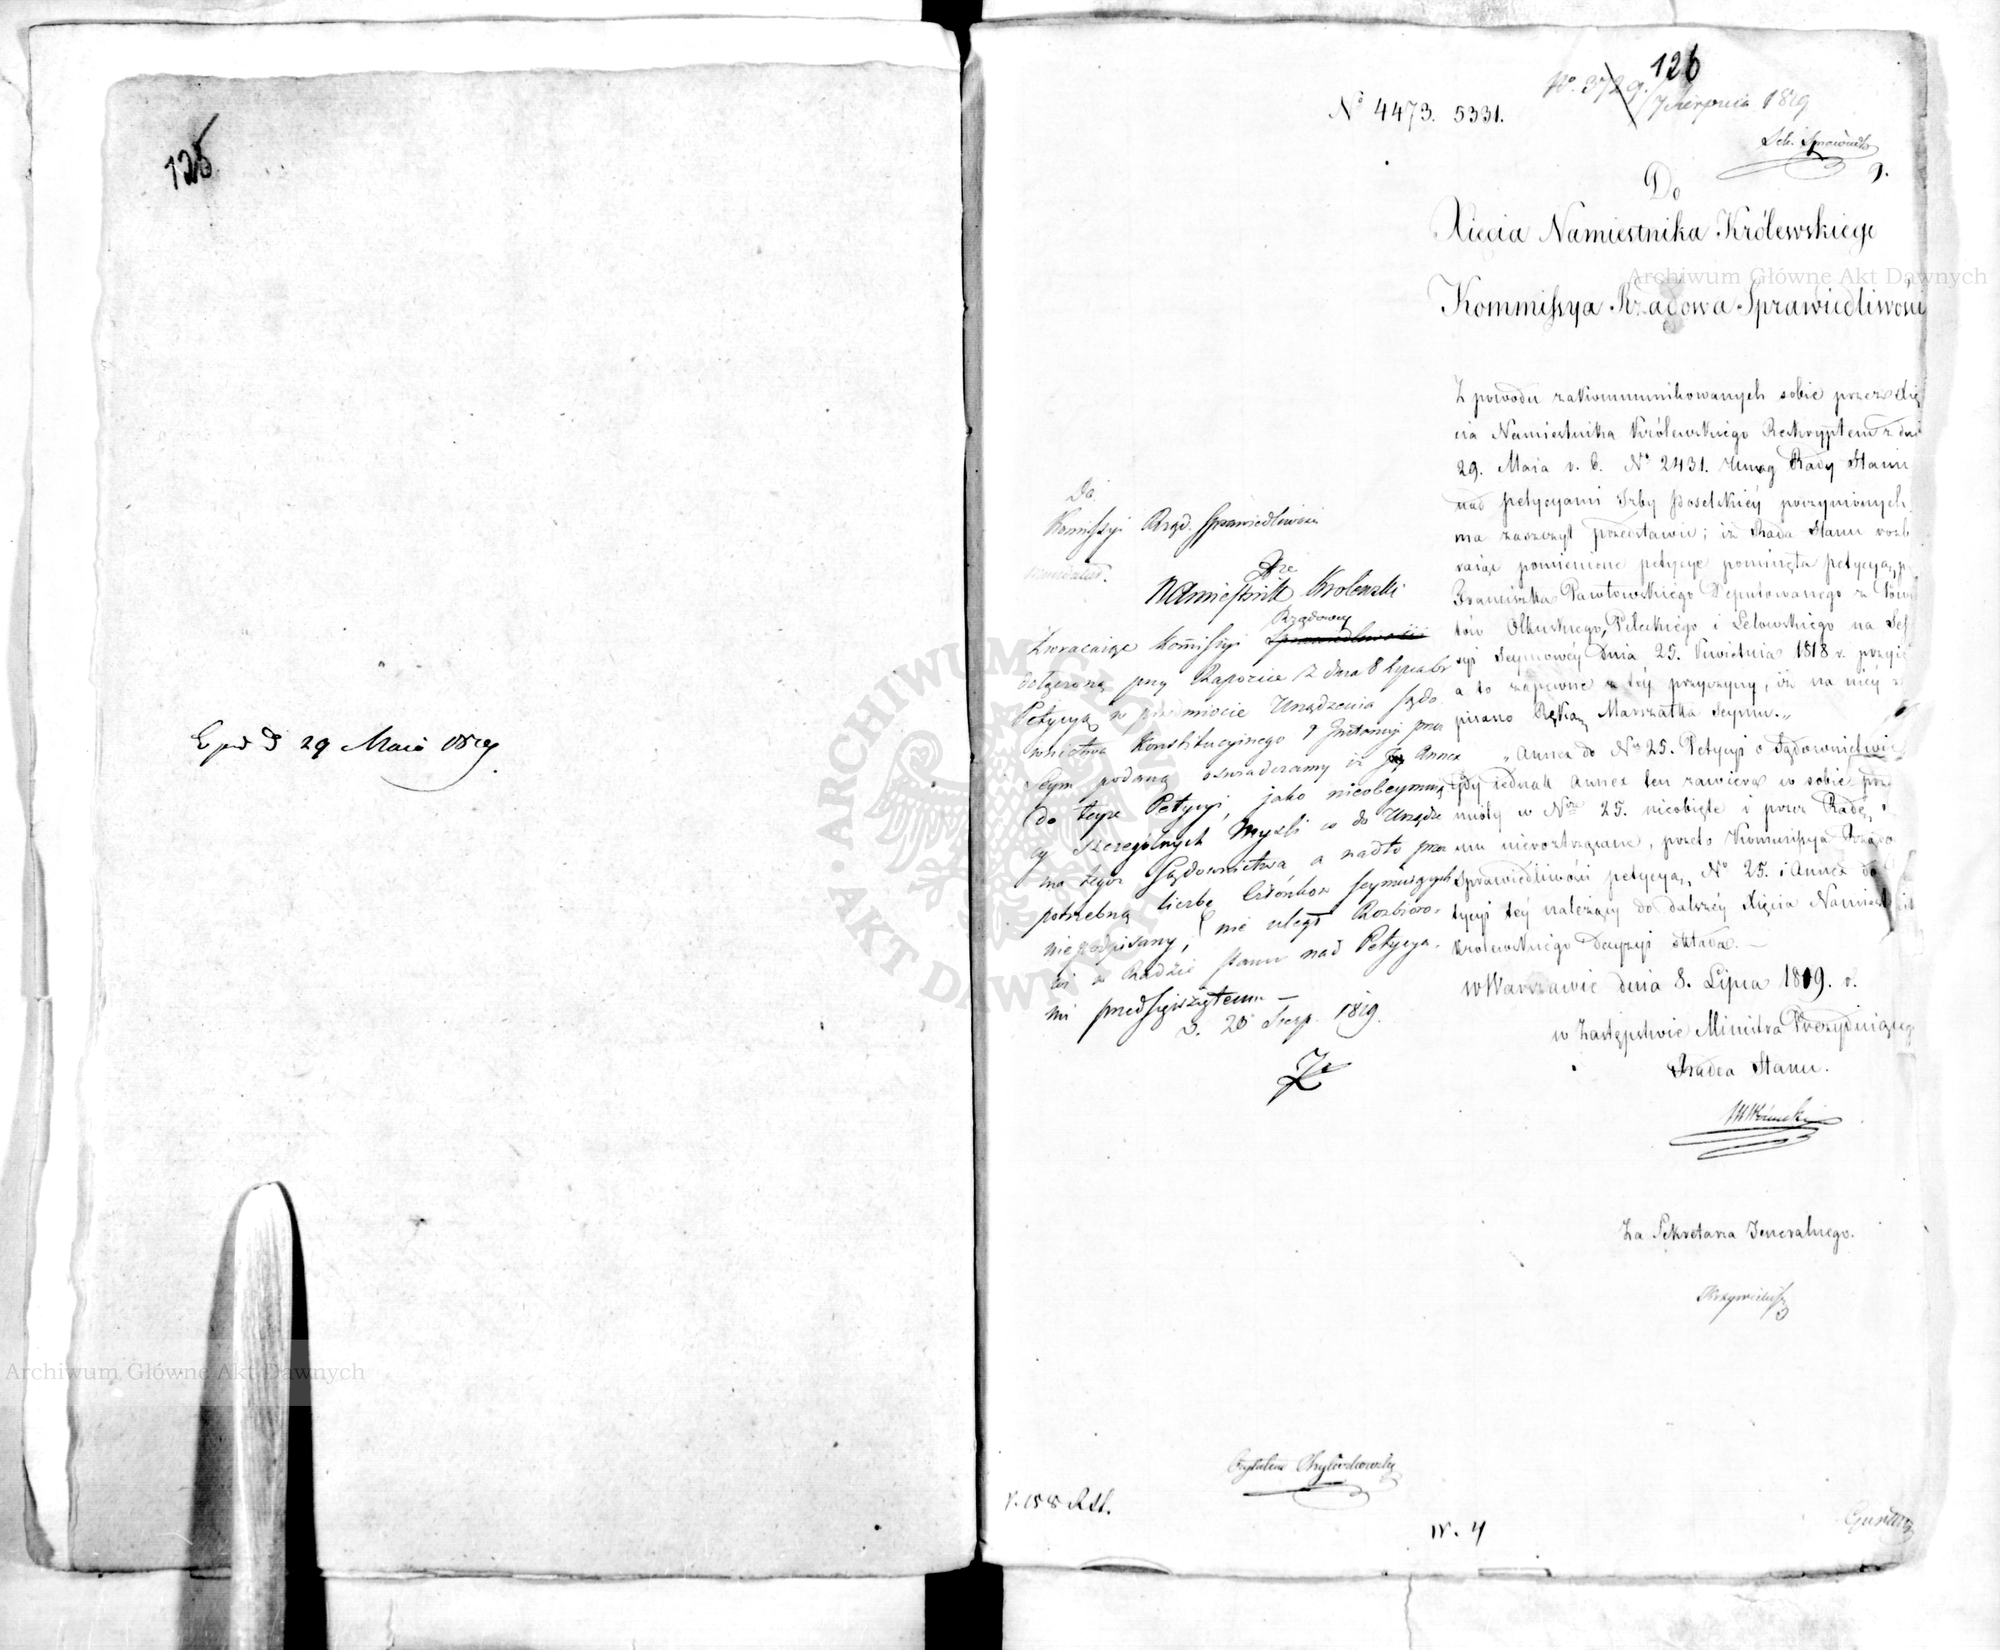 125
Exp d 29 Maia 1819
126
No. 3729.
7 Sierpnia 1819
No 4473. 5331.
Sek. Sprawiedl.
Do
Xięcia Namiestnika Królewskiego
Kommissya Rządowa Sprawiedliwości
Z powodu zakommunikowanych sobie przez Xię
cia Namiestnika Królewskiego Reskryptem z dnia
29. Maia r. b. No 2431. Uwag Rady Stanu
nad petycyami Izby Poselskiéy poczynionych,
ma zaszczyt przedstawić; iż Rada Stanu rozb
raiąc pomienione petycye pominęła petycyą p.
Franciszka Pawłowskiego Deputowanego z Powia
tów Olkuskiego, Pileckiégo i Lelowskiégo na Ses
syi Seymowéy dnia 25. Kwietnia 1818 r. przyię
a to zapewne z téy przyczyny, iż na niéy
pisano Ręką Marszałka Seymu.
„Annex do No 25. Petycyi o Sądownictwie
Gdy iednak Annex ten zawiera w sobie prze
mioty w Nrze 25. nieobięte i przez Radę
nierostrząsane, przeto Kommissya Rządo
Sprawiedliwości petycyą No 25. i Annex do
tycyi téy należący do dalszéy Xięcia Namiest
Królewskiégo decyzyi składa. —
w Warszawie dnia 8. Lipca 1819. r.
w Zastępstwie Ministra Prezyduiącego
Radca Stanu.
Za Sekretarza Jeneralnego.
Do
Komissyi Rząd. Sprawiedliwości
Xże
Namiestnik Królewski
Rządowey
Zwracaiąc Komissyi Sprawiedliwości
dołączoną przy Raporcie z dnia 8 Lipca br
Petycyą w przedmiocie Urządzenia Sądo
wnictwa Konstitucyinego
Seym podaną oświadczamy iż Annex
do teyże Petycyi, jako nieobeymuią
cy szczególnych Myśli co do Urządze
nia tegoż Sądownictwa a nadto przez
potrzebną liczbę Członków Seymuiących
niepodpisany, nie uległ Rozbioro
wi w Radzie Stanu nad Petycya
mi przedsięwziętemu —
d. 28 Sierp. 1819.
N. 4
Archiwum Główne Akt Dawnych
Archiwum Główne Akt Dawnych
ARCHIWUM GŁÓWNE AKT DAWNYCH